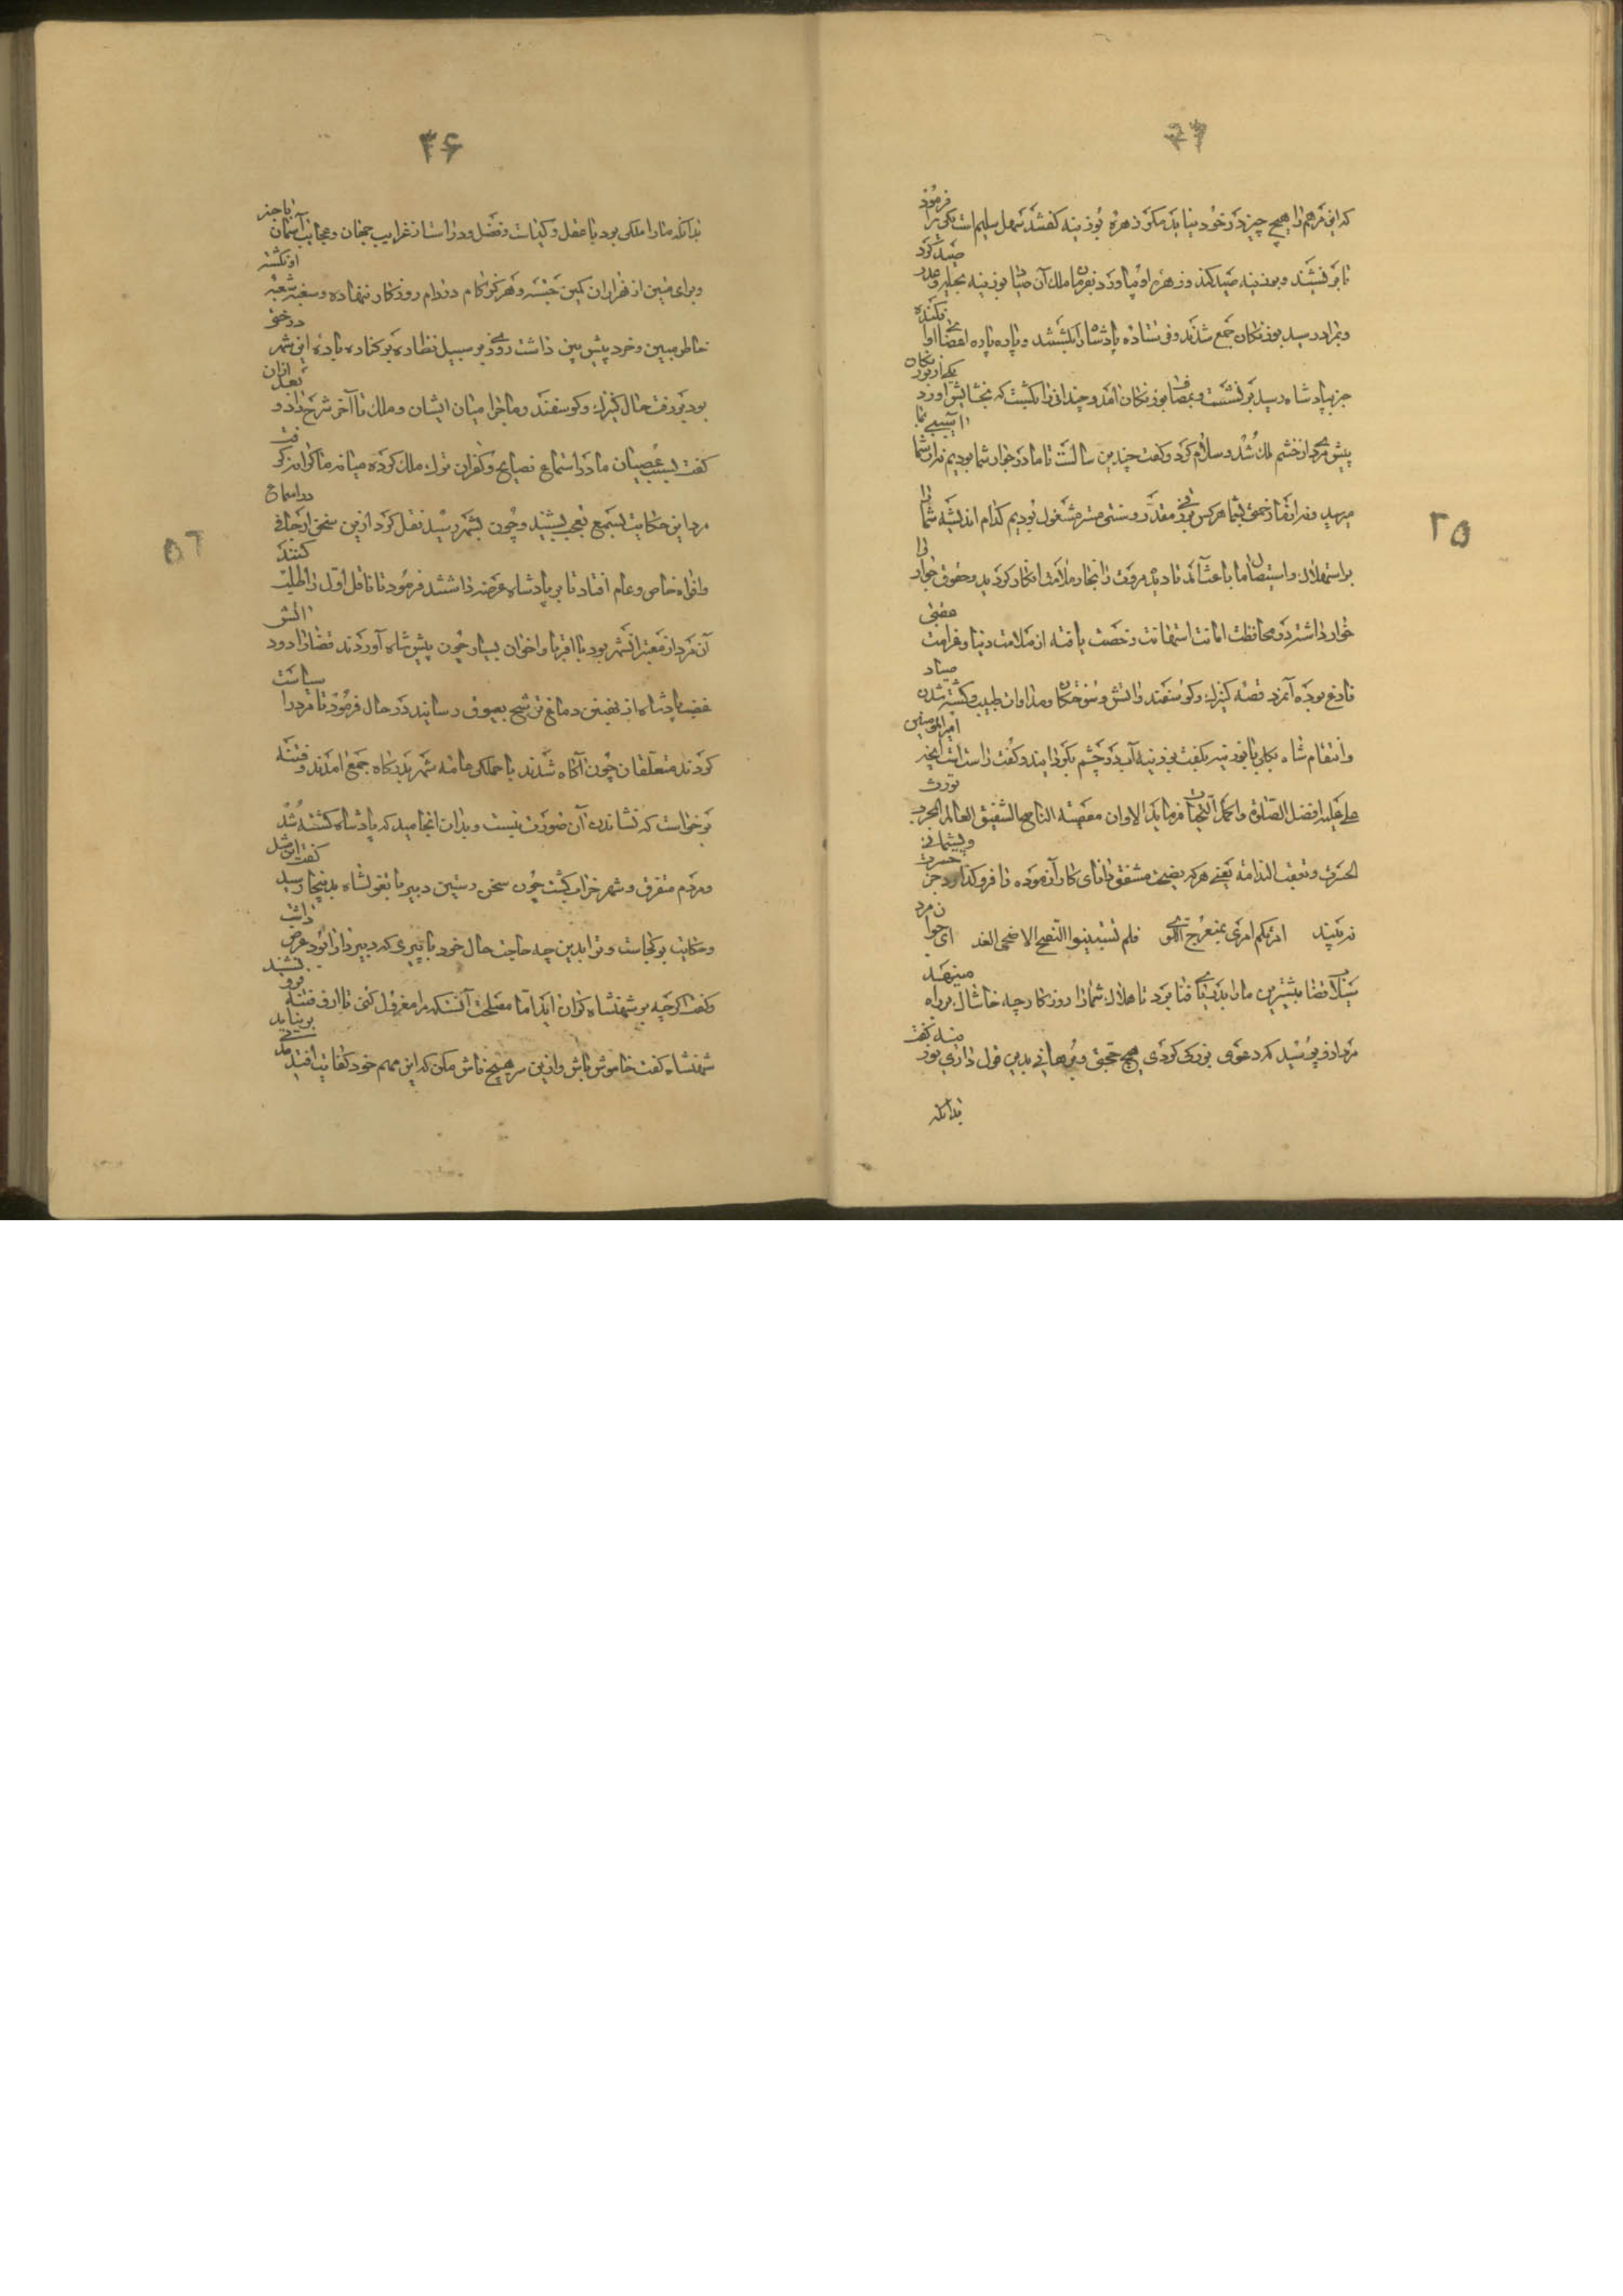 ۲۵
که این مرهم را هیچ چیز در خود نیاید مکر زهره بوزینه کفتند سهل سلیم است یکی را فرمود
تا برنشیند و بوزینه صید کند و زهره او بیاورد بفرمان ملک آن صیاد بوزینه بحیله و غدر صید کرد
و بمراد رسید بوزنکان جمع شدند و فرستاده پادشاه را بکشتند و پاره پاره اعضای او افکنده
خبر بپادشاه رسید برنشست و بمصاف بوزنکان آمد و چندانی را بکشت که بخشایش آورد یکی از بوزنکان
پیش مردی از خشم ملک شد و سلام کرد و کفت چندین سالست تا ما در جوار شما بودیم نه از شما آسیبی بما
میرسید و نه از ما زحمتی بشما هر کس برزقی مقدر و ستری مستر مشغول بودیم کدام اندیشه شما را
بر استهلاک و استیصال ما باعث آمد تا دیده مروت را بخار ملامت افکار کردید و حقوق جوار را
خوار داشته و محافظت امانت استهانت رخصت یافته از ملامت دنیا و غرامت عقبی
فارغ بوده آمرد قصه کنیزک و کوسفند و آتش و سوختکان و مداوات طبیب و کشته شدن صیاد
و انتقام شاه بکلی با بوزینه بکفت بوزینه آب در چشم بکردانید و کفت راست است آنچه امیرالمؤمنین
علی علیه افضل الصلوة و اکمل التحیات فرماید الا و ان معصیة الناصح الشفیق العالم المجرب تورث
الحسرة و تعقب الندامة یعنی هر که نصیحت مشفق دانای کار آزموده را فروکذارد جز حسرت و پشیمانی
نه بیند امرتکم امری بمنعرج اللوی فلم تستبینوا النصح الا ضحی الغد ای جوان مرد
سیلاب قضا پیشترین ما را بدریای فنا برد تا هلاک شما را روزکار چه خاشاک بر راه مینهد
مرد از او پرسید که دعوی بزرک کردی هیچ حجتی و برهانی بدین قول داری بوزینه کفت
بدانکه
۳۶
بدانکه ما را ملکی بود با عقل و کیاست و فضل و دراست از غرایب جهان و عجایب آسمان با خبر
و برای متین از هزاران کمین جسته و هرکز کام در دام روزکار ننهاده و سغبه شعبده او نکشته
خاطر مبین و خرد پیش بین داشت روزی بر سبیل نظاره بر کناره باره این شهر درختی
بود بر رفت حال کنیزک و کوسفند و ماجرای میان ایشان و ملک تا آخر شرح داد و بعد از آن
کفت بسبب عصیان ما در استماع نصایح و کفران ترک ملک کرده میانه ما کران کرفت
مرد این حکایت بسمع تعجب بشنید و چون بشهر رسید نقل کرد ازین سخن اراجافی در اسماع
و افواه خاص و عام افتاد تا بر پادشاه عرضه داشتند فرمود تا ناقل اول را طلب کنند
آن مرد از معتبران شهر بود با اقربا و اخوان بسیار چون پیش شاه آوردند قضا را دود آتش
غضب پادشاه از نخستین دماغ ترشح بعیوق رسانید در حال فرمود تا مرد را سیاست
کردند متعلقان چون آکاه شدند با جملکی عامه شهر بدرکاه جمع آمدند و فتنه
برخواست که نشاندن آن صورت نبست و بدان انجامید که پادشاه کشته شد
و مردم متفرق و شهر خراب کشت چون سخن رستین دبیر با بغولشاه بدینجا رسید کفت این مثل
و حکایت بر کجاست و ترا بدین چه حاجت حال خود با پیری که دبیر دارا بود عرض داشت
و کفت اکرچه بر شهنشاه کران آید اما مصلحت آنست که مرا معزول کنی تا این فتنه فرو نشیند
شهنشاه کفت خاموش باش و ازین سر هیچ فاش مکن که این مهم خود کفایت افتد مدتی برنیاید
۲۵
۵۲